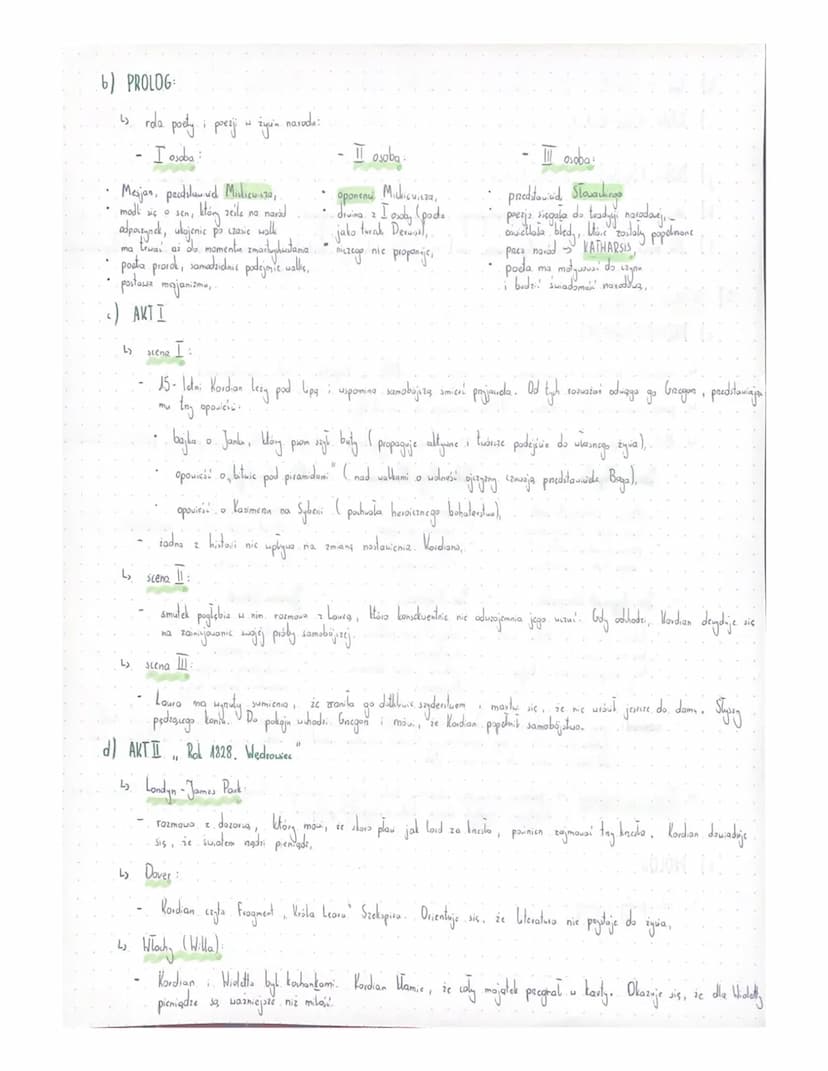 b) PROLOG:
↳ rola poety i poezji w życiu narodu:
- I osoba:
• Mesjan, przedstawiciel Mickiewicza,
• modli się o sen, który ześle na naród
odpoczynek, ukojenie po czasie walk
ma trwać aż do momentu zmartwychwstania
• poeta prorok, samodzielnie podejmie walkę,
• postawa mesjanizmu,
- II osoba:
• oponent Mickiewicza,
• drwina z I osoby (poeta
jako turecki Derwisz),
• niczego nie proponuje,
- III osoba:
• przedstawiciel Słowackiego
• poezja sięgała do tradycji narodowej,
oświetlała błędy, które zostały popełnione
przez naród → KATHARSIS,
• poeta ma motywować do czynu
i budzić świadomość narodową,
c) AKT I
↳ scena I:
- 15-letni Kordian leży pod lipą i wspomina samobójczą śmierć przyjaciela. Od tych rozważań odciąga go Grzegorz, przedstawiając
mu trzy opowieści:
• bajka o Janku, który psom szył buty (propaguje aktywne i twórcze podejście do własnego życia),
• opowieść o „bitwie pod piramidami" (nad walkami o wolność ojczyzny czuwają przedstawiciele Boga),
• opowieść o Kazimierzu na Syberii (pochwała heroicznego bohaterstwa),
- żadna z historii nie wpływa na zmianę nastawienia Kordiana,
↳ scena II:
- smutek pogłębia w nim rozmowa z Laurą, która konsekwentnie nie odwzajemnia jego uczuć. Gdy odchodzi, Kordian decyduje się
na zainicjowanie swojej próby samobójczej.
↳ scena III:
- Laura ma wyrzuty sumienia, że zraniła go dotkliwie szyderstwem i martwi się, że nie wrócił jeszcze do domu. Słyszy
pędzącego konia. Do pokoju wchodzi Grzegorz i mówi, że Kordian popełnił samobójstwo.
d) AKT II „Rok 1828. Wędrowiec"
↳ Londyn - James Park:
- rozmowa z dozorcą, który mówi, że skoro płaci jak lord za krzesło, powinien zajmować trzy krzesła. Kordian dowiaduje
się, że światem rządzi pieniądz,
↳ Dover:
- Kordian czyta fragment „Króla Leara" Szekspira. Orientuje się, że literatura nie przystaje do życia,
↳ Włochy (Willa):
- Kordian i Wioletta byli kochankami. Kordian kłamie, że cały majątek przegrał w karty. Okazuje się, że dla Wioletty
pieniądze są ważniejsze niż miłość.